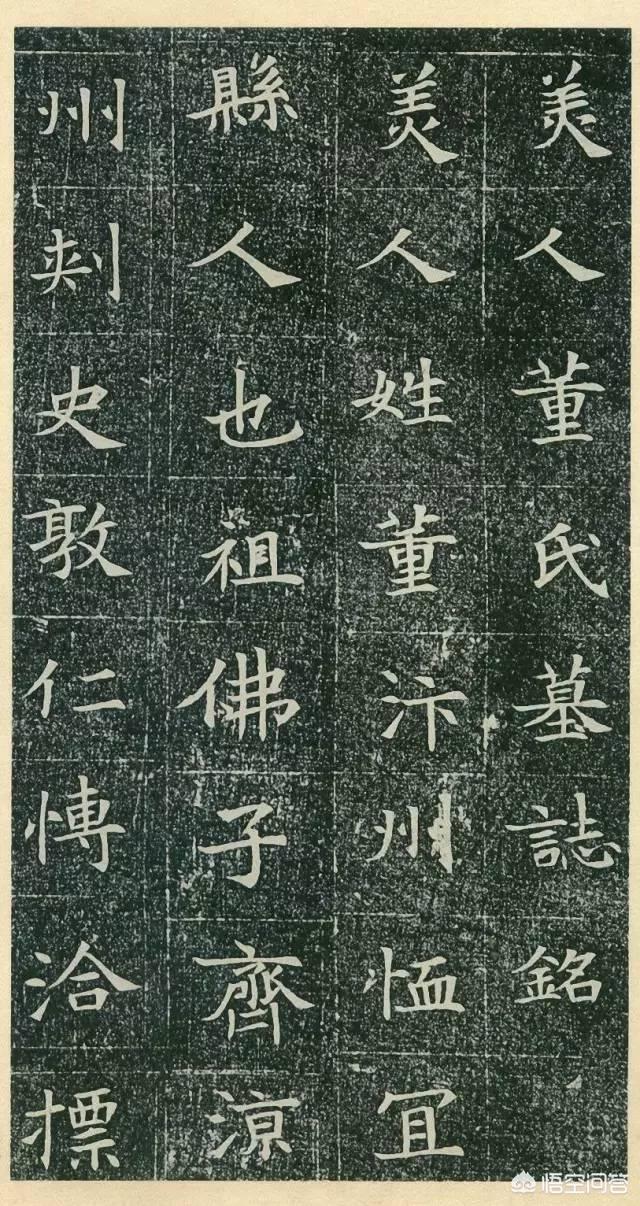 美人董氏墓誌銘
美人姓董汴州恤冝
縣人也祖佛子齊涼
州刾史敦仁愽洽摽
悟空问答